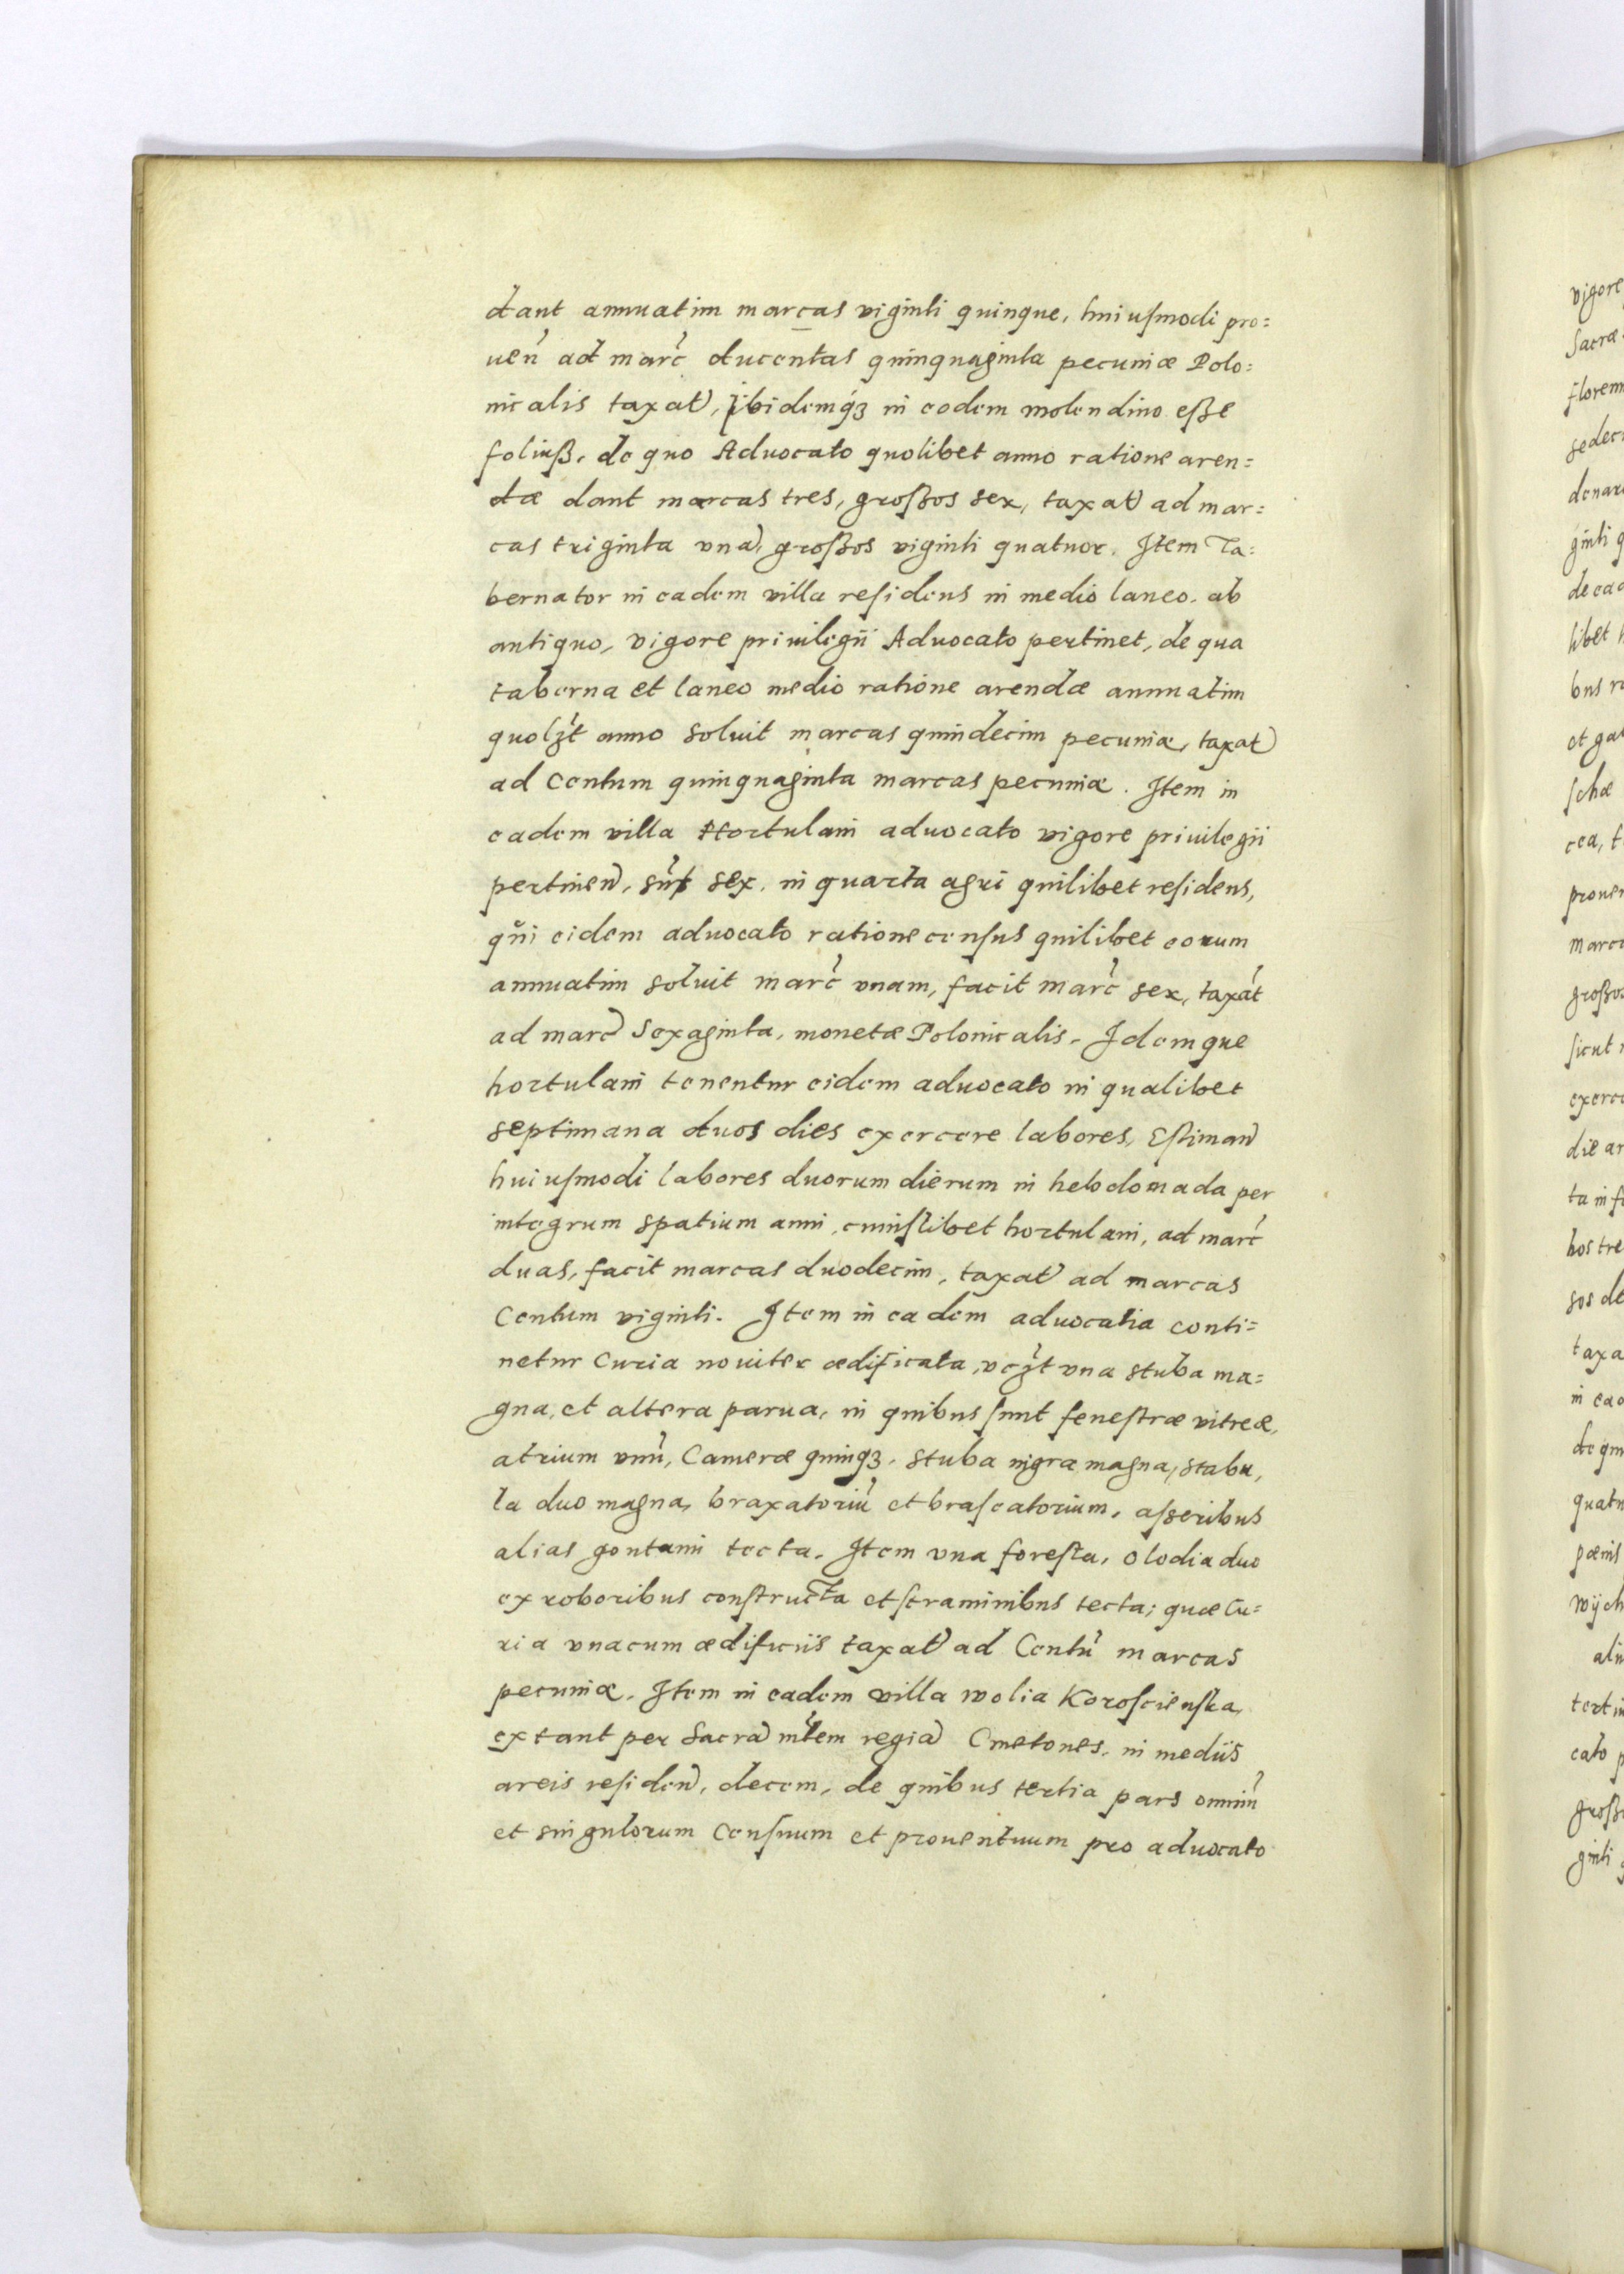 dant annuatim marcas viginti quinque, huiusmodi pro=
uen̉ ad marc̉ ducentas quinquaginta pecuniæ Polo=
nicalis taxat̉, ibidemq́ꝫ in eodem molendino eße
foluß, de quo Aduocato quolibet anno ratione aren=
dæ dant marcas tres, großos sex, taxat̉ ad mar=
cas triginta vnā, großos viginti quatuor. Item Ta=
bernator in eadem villa residens in medio laneo, ab
antiquo, vigore priuilegii Aduocato pertinet, de qua
taberna et laneo medio ratione arendæ annuatim
quolꝫt anno soluit marcas quindecim pecuniæ, taxat̉
ad Centum quinquaginta marcas pecuniæ. Item in
eadem villa Hortulani aduocato vigore priuilegii
pertinen̉, sūt sex, in quarta agri quilibet residens,
qui eidem aduocato ratione census quilibet eorum
annuatim soluit marc̉ vnam, facit marc̉ sex, taxat̉
ad marc̉ Sexaginta, monetæ Polonicalis. Idemque
hortulani tenentur eidem aduocato in qualibet
septimana duos dies exercere labores, Estiman̉
huiusmodi labores duorum dierum in hebdomada per
integrum spatium anni, cuiuslibet hortulani, ad marc̉
duas, facit marcas duodecim, taxat̉ ad marcas
Centum viginti. Item in eadem aduocatia conti=
netur Curia nouiter ædificata, vꝫt vna stuba ma=
gna, et altera parua, in quibus sunt fenestræ vitreæ,
atrium vnū, Cameræ quinqꝫ, stuba nigra magna, stabu,
la duo magna, braxatoriū et braseatorium, asseribus
alias gontami tecta. Item vna foresta, Olodia duo
ex roboribus constructa et straminibus tecta; quæ Cu=
ria vnacum ædificiis taxat̉ ad Centū marcas
pecuniæ. Item in eadem villa wolia Koroscienska,
extant per Sacrā mtem regiā Cmetones, in mediis
areis residen̉, decem, de quibus tertia pars omniū
et singulorum Censuum et prouentuum pro aduocato